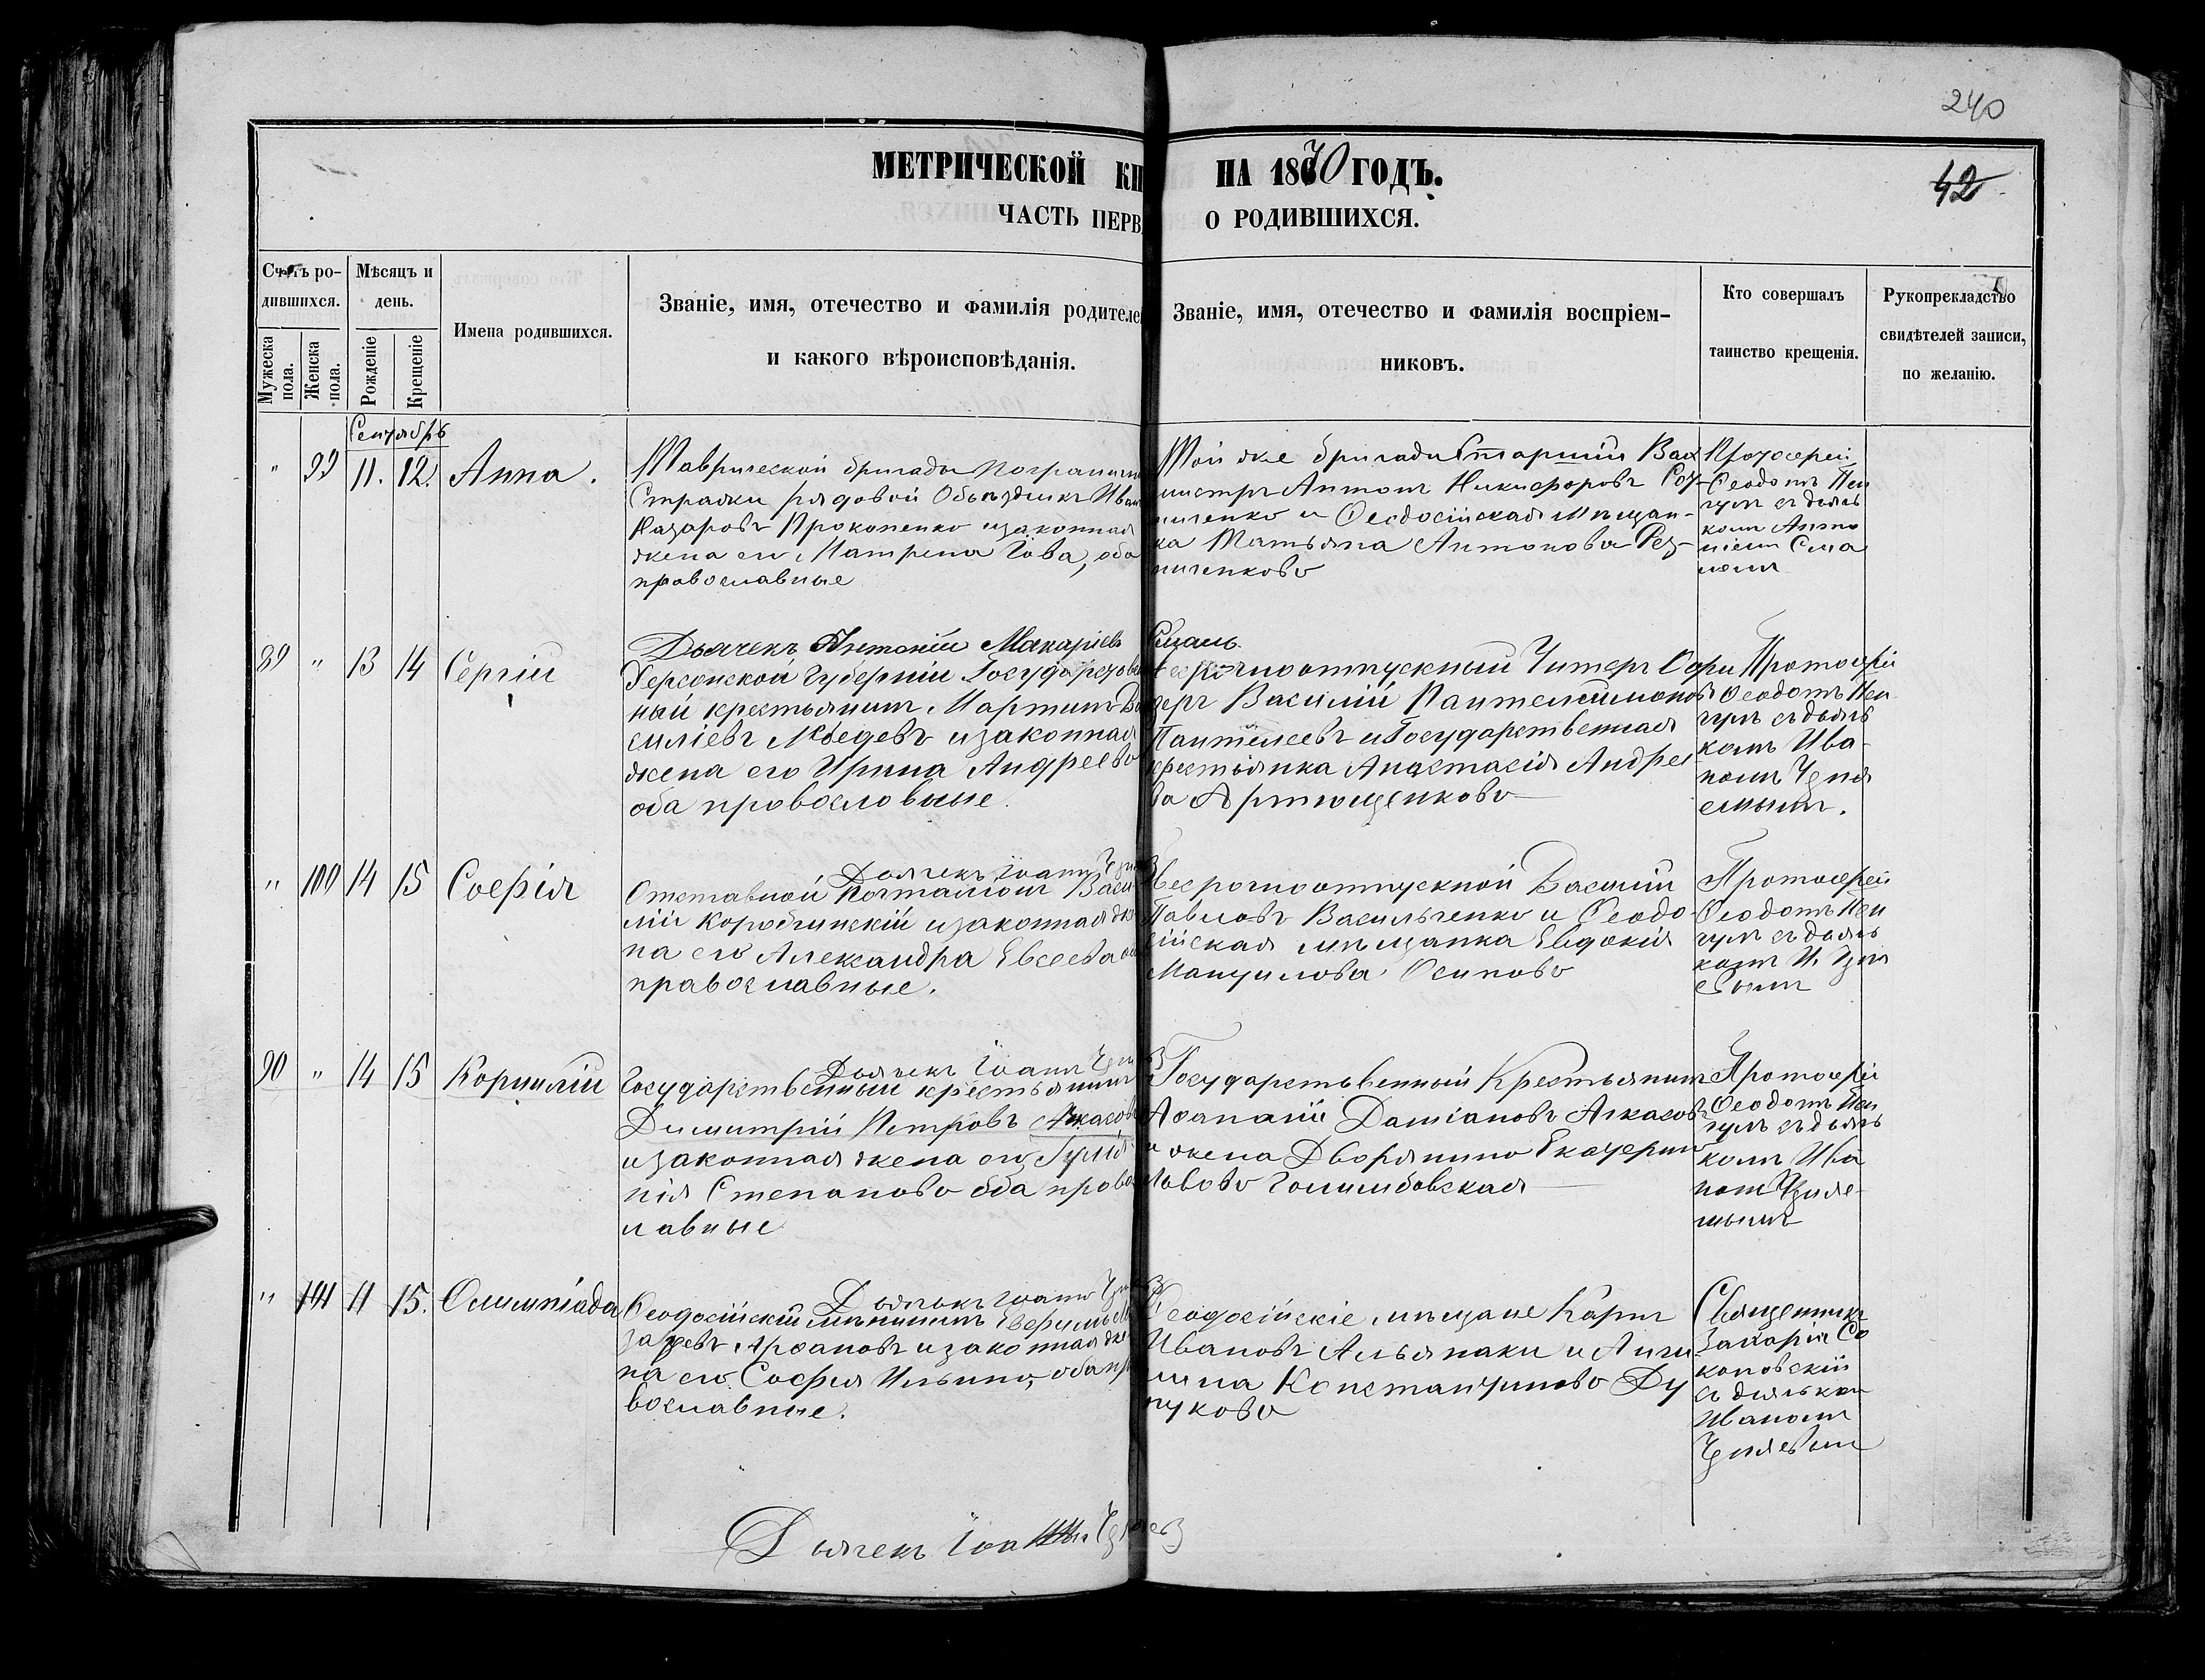 240
42
МЕТРИЧЕСКОЙ КН НА 1870 ГОДЪ.
ЧАСТЬ ПЕРВ О РОДИВШИХСЯ.
Счетъ родившихся.
Мужеска пола.
Женска пола.
Мѣсяцъ и день.
Рожденіе
Крещеніе
Имена родившихся.
Званіе, имя, отечество и фамилія родителе
и какого вѣроисповѣданія.
Званіе, имя, отечество и фамилія воспріем-
никовъ.
Кто совершалъ
таинство крещенія.
Рукоприкладство
свидѣтелей записи,
по желанію.
Сентябрь
" 99 11. 12. Анна.
Таврической бригады Погранич
Стражи рядовой Объѣздчикъ Иван
Назаровъ Прокопенко и законная
жена его Матрена Іова, оба
православные
Той же бригады Старшій Вах
мистръ Антонъ Никифоровъ
ниченко и Ѳеодосійская Мѣщан-
ка Татьяна Антонова Рез-
ниченкова
Протоіерей
Ѳеодотъ
съ дьяч
комъ Анто
ніемъ
Дьячекъ Антоній Макаріевъ
89 " 13 14 Сергій
Херсонской Губерніи Государстве
ный крестьянинъ Мартинъ Ва
силіевъ и законная
жена его Ирина Андреева
оба православные.
Безсрочноотпускный Унтеръ Офи
церъ Василій Пантелеимоновъ
Пантелеевъ и Государственная
крестьянка Анастасія Андрее
ва Артющенкова
Протоіерей
Ѳеодотъ
съ дьяч
комъ Ива-
номъ
" 100 14 15 Софія
Дьячекъ Іоаннъ
Отставной Почталіонъ Васи
лій Коробчинскій и законная же
на его Александра Евсеева оба
православные.
Безсрочноотпускной Василій
Павловъ Васильченко и Ѳеодо-
сійская мѣщанка Евдокія
Мануилова Осипова
Протоіерей
Ѳеодотъ
съ дьяч
комъ И.
90 " 14 15 Корнилій
Дьячекъ Іоаннъ
Государственный крестьянинъ
Димитрій Петровъ Алкасовъ
и законная жена его
нія Степанова оба правос
лавные
Государственный Крестьянинъ
Аѳанасій Даміановъ Алкасовъ
и жена Дворянина Екатерина
Львова Голимбовская
Протоіерей
Ѳеодотъ
съ дьяч
комъ Ива
номъ
" 101 11 15. Олимпіада
Дьячекъ Іоаннъ
Ѳеодосійскій мѣщанинъ
и законная же
на его Софія Ильина, оба пра
вославные.
Ѳеодосійскіе мѣщане Карпъ
Ивановъ Альянаки и Анги
лина Константинова
Священникъ
Захарія Со
коловскій
съ дьячком
Иваномъ
Дьячекъ Іоаннъ